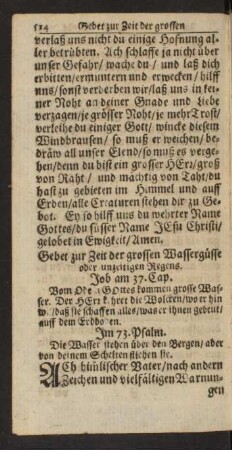 514 Gebet zur Zeit der grossen
verlaß uns nicht du einige Hofnung al-
ler betrübten. Ach schlaffe ja nicht über
unser Gefahr/ wache du/ und laß dich
erbitten/ermuntern und erwecken/ hilff
uns/ sonst verderben wir/laß uns in kei-
ner Noht an deiner Gnade und Liebe
verzagen/je grösser Noht/je mehr Trost/
verleihe du einiger Gott/ wincke diesem
Windbrausen/ so muß er weichen/ be-
dräw all unser Elend/ so muß es verge-
hen/denn du bist ein grosser HErr/groß
von Raht/ und mächtig von Taht/du
hast zu gebieten im Himmel und auff
Erden/alle Creaturen stehen dir zu Ge-
bot. Ey so hilff uns du wehrter Name
Gottes/du süsser Name JEsu Christi/
gelobet in Ewigkeit/Amen.
Gebet zur Zeit der grossen Wassergüsse
oder unzeitigen Regens.
Job am 37. Cap.
Vom Odem GOttes kommen grosse Was-
ser. Der HErr kehret die Wolcken/wo er hin
/daß sie schaffen alles/was er ihnen gebeut/
auff dem Erdboden.
Im 73. Psalm.
Die Wasser stehen über den Bergen/ aber
von deinem Schelten fliehen sie.
ACh himlischer Vater/nach andern
Zeichen und vielfältigen Warnun-
gen